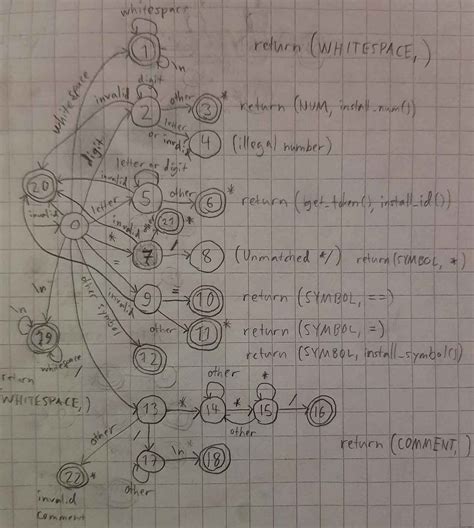 whitespace
1
\n
return (WHITESPACE,)
whitespace
invalid
digit
2
other
3
*
return (NUM, install_num())
digit
letter
or invalid
4
(illegal number)
letter or digit
20
invalid
5
other
6
*
return (get_token(), install_id())
invalid
0
letter
invalid
other
21
*
*
7
/
8
(Unmatched */)
return(SYMBOL, *)
=
9
=
10
return (SYMBOL, ==)
\n
other symbol
invalid
other
11
*
return (SYMBOL, =)
19
whitespace
12
return (SYMBOL, install_symbol())
return
(WHITESPACE,)
other
*
13
*
14
*
15
/
16
other
return (COMMENT,)
other
/
17
\n
18
22
*
invalid
comment